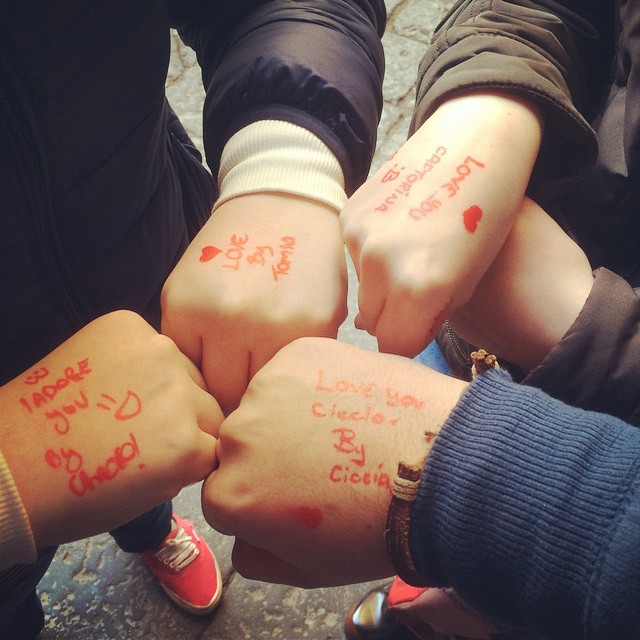 LOVE
By
Tamia
LOVE YOU
CAPTORINA
:B
I ADORE
YOU =D
By
Love you
Ciccio.
By
Ciccia